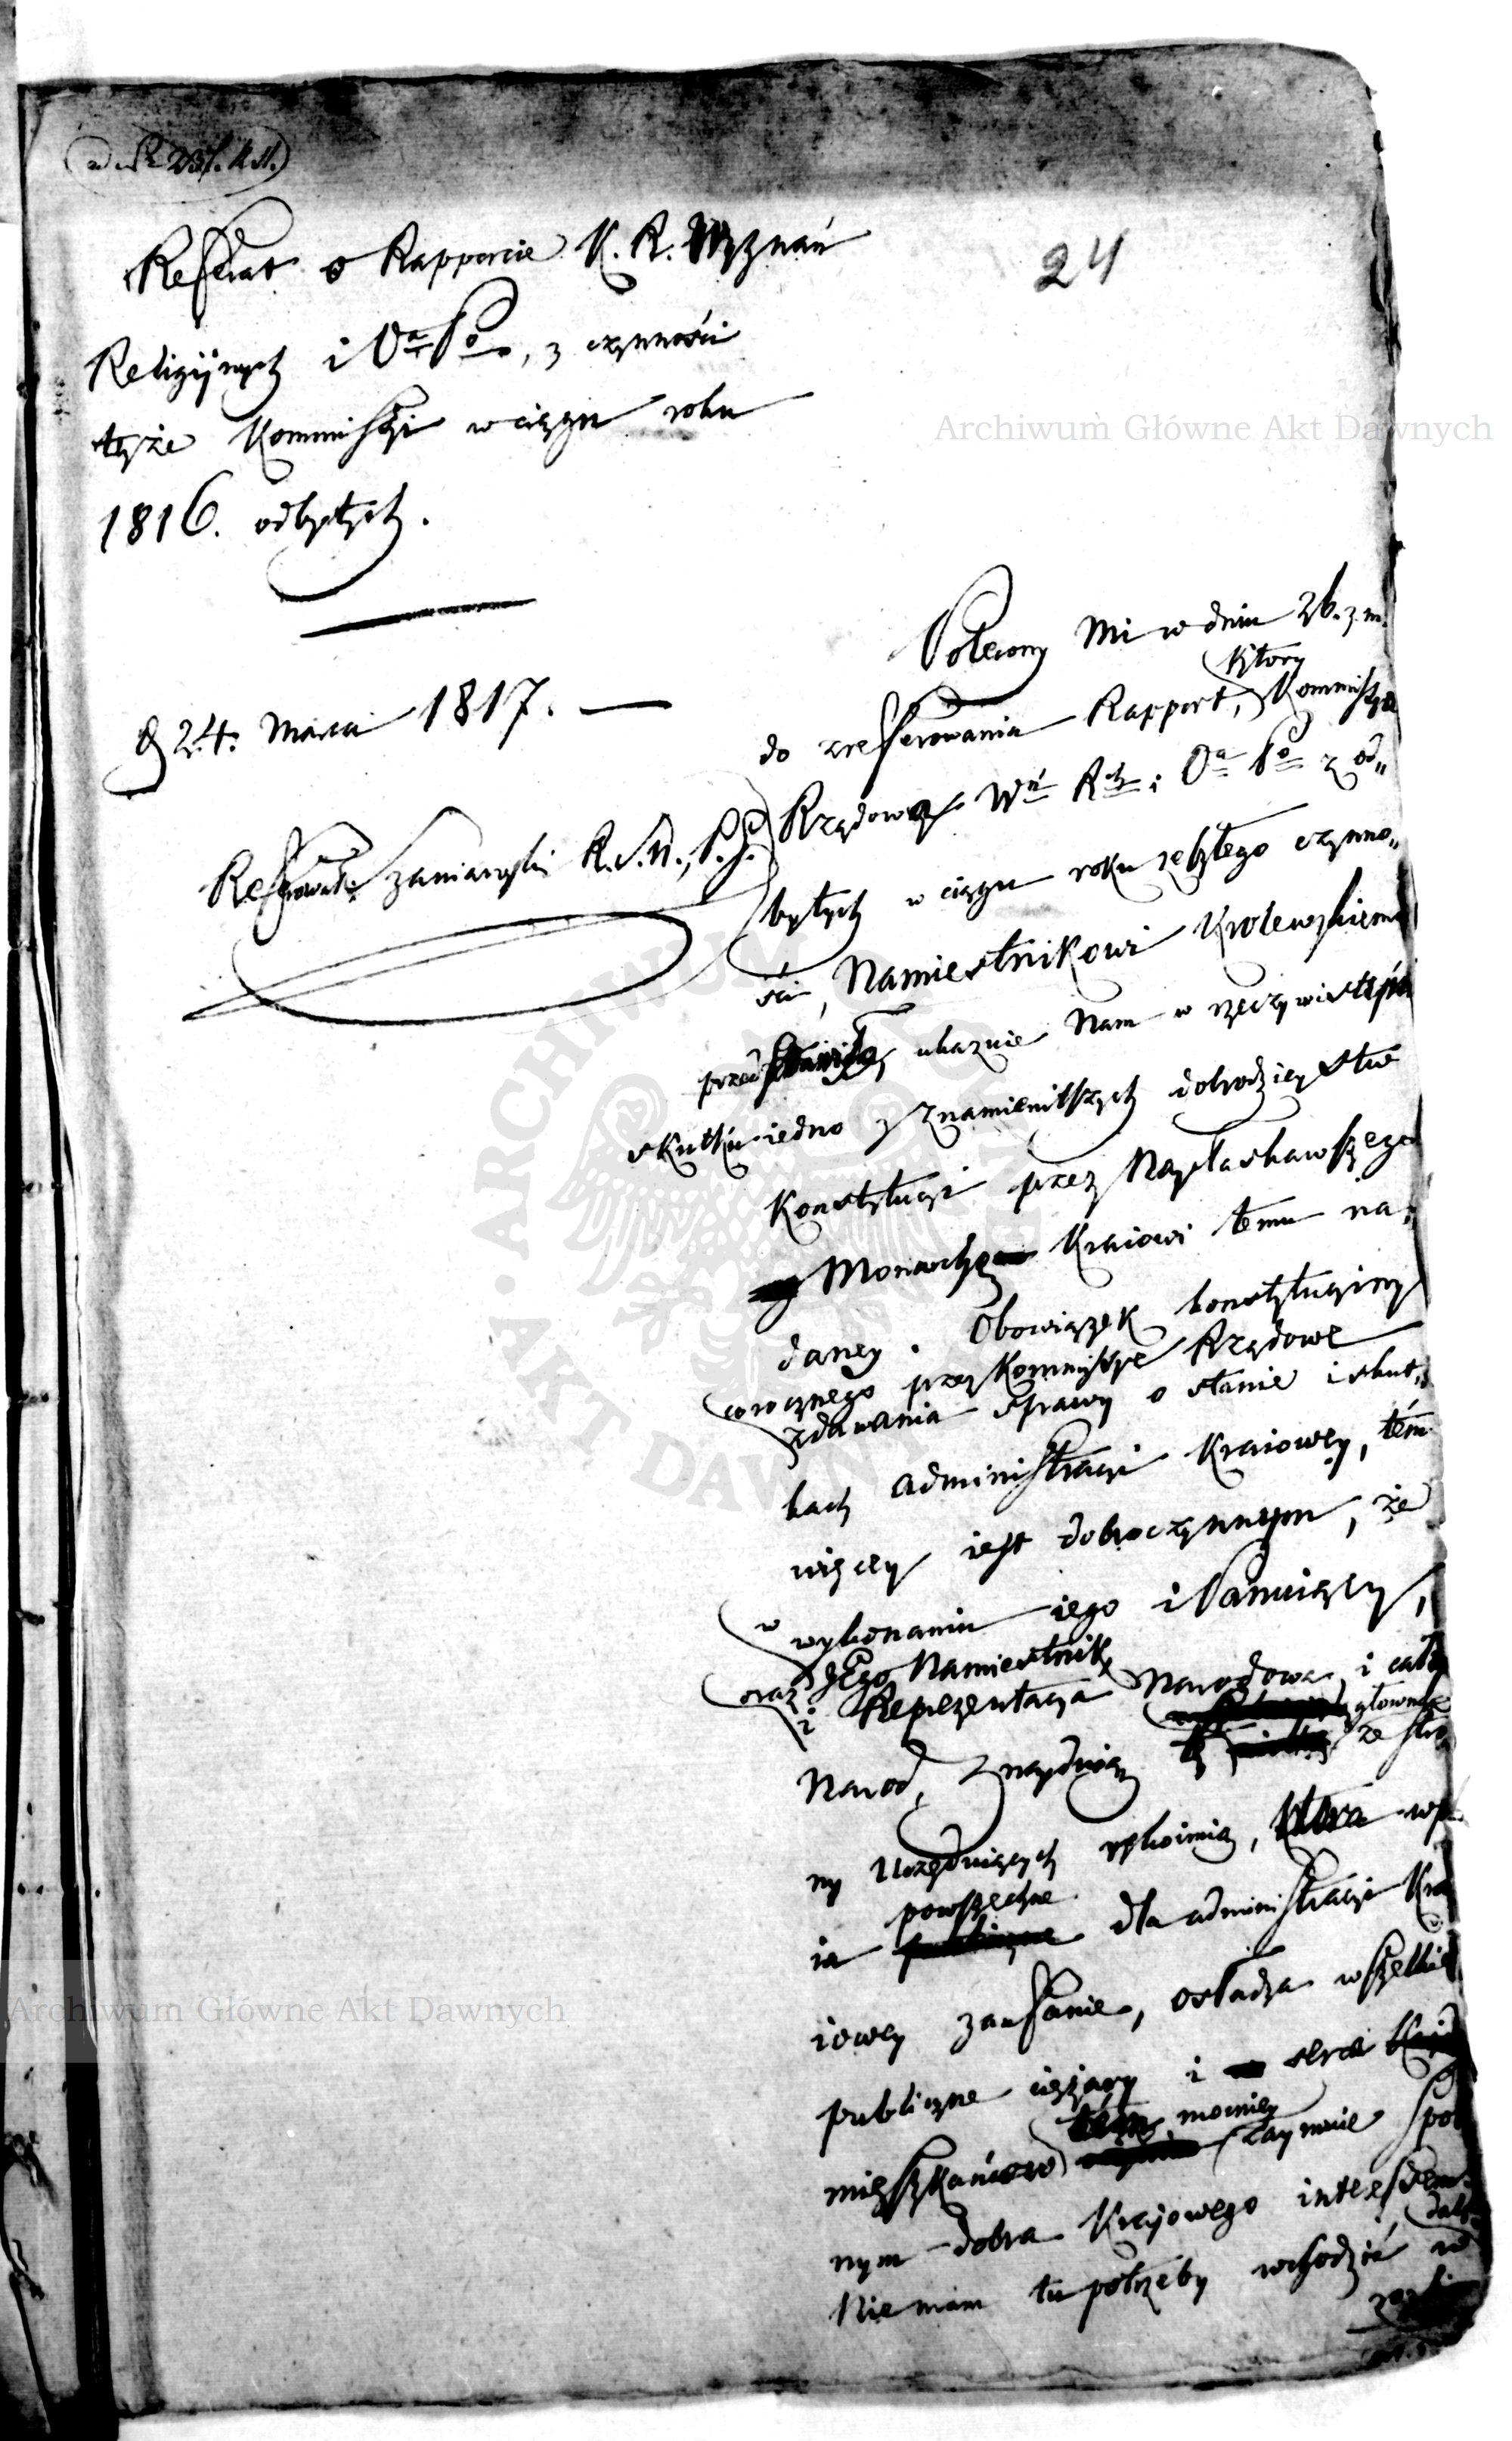 24
Referat o Rapporcie K. R. Wyznań
Religijnych i Oa Po, z czynności
teyże Kommissyi w ciągu roku
1816. odbytych.
d 24. Marca 1817.
Referował Szaniawski R. S. N., P. J.
Polecony Mi w dniu 26. z. m.
do zreferowania Rapport, który Kommissya
Rządowa Wń Rch i Oa Po z od„
bytych w ciągu roku zeszłego czynno„
ści, Namiestnikowi Krolewskiemu
przedstawiła, ukazuie Nam w rzeczywistym
skutku iedno z znamienitszych dobrodzieystw
Konstytucyi przez Nayłaskawszego
Monarchę Kraiowi temu na„
daney. Obowiązek konstytucyiny
corocznego przez Kommissye Rządowe
zdawania sprawy o stanie i skut„
kach administracyi Kraiowey, tém
więcey iest dobroczynnym, że
w wykonaniu iego i Panuiący,
oraz JEgo Namiestnik
i Reprezentacya Narodowa, i cały
Narod, znayduią głownie
tę ze stro
ny Urzęduiących rękoimią, która wpa
ia powszechne dla administracyi Kra
iowey zaufanie, osładza wszelkie
publiczne ciężary i serca
mieszkańcow tém mocniey zaymuie spol
nym dobra Krajowego interessem.
Nie mam tu potrzeby wchodzić w
Archiwum Główne Akt Dawnych
Archiwum Główne Akt Dawnych